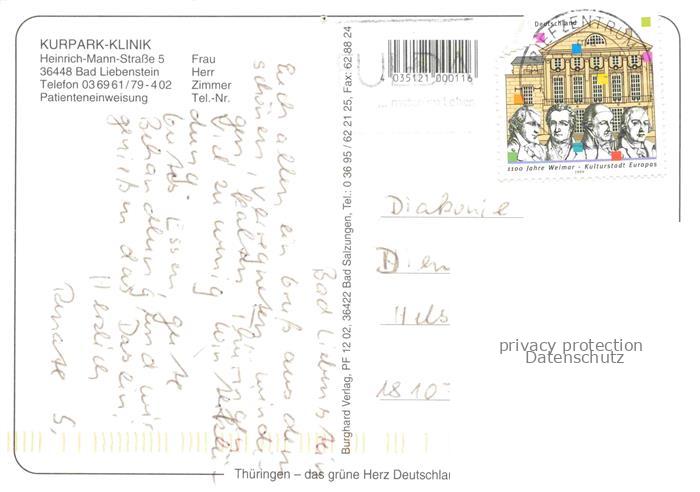 KURPARK-KLINIK
Heinrich-Mann-Straße 5
36448 Bad Liebenstein
Telefon 03 69 61 / 79 - 4 02
Patienteneinweisung
Frau
Herr
Zimmer
Tel.-Nr.
Bad Liebenstein
Euch allen ein Gruß aus dem
schönen, verregneten, windi-
gen, kalten Thüringen
viel zu wenig
dung
gutes Essen, gute
Behandlung und wir
genießen das Dasein.
Herzlich
Renate S.
Burghard Verlag, PF 12 02, 36422 Bad Salzungen, Tel.: 0 36 95 / 62 21 25, Fax: 62 88 24
4 035121 000116
Deutschland
BRIEFZENTRUM
1100 Jahre Weimar - Kulturstadt Europas
1999
Diakonie
Dien
Hels
1810
privacy protection
Datenschutz
Thüringen – das grüne Herz Deutschlan